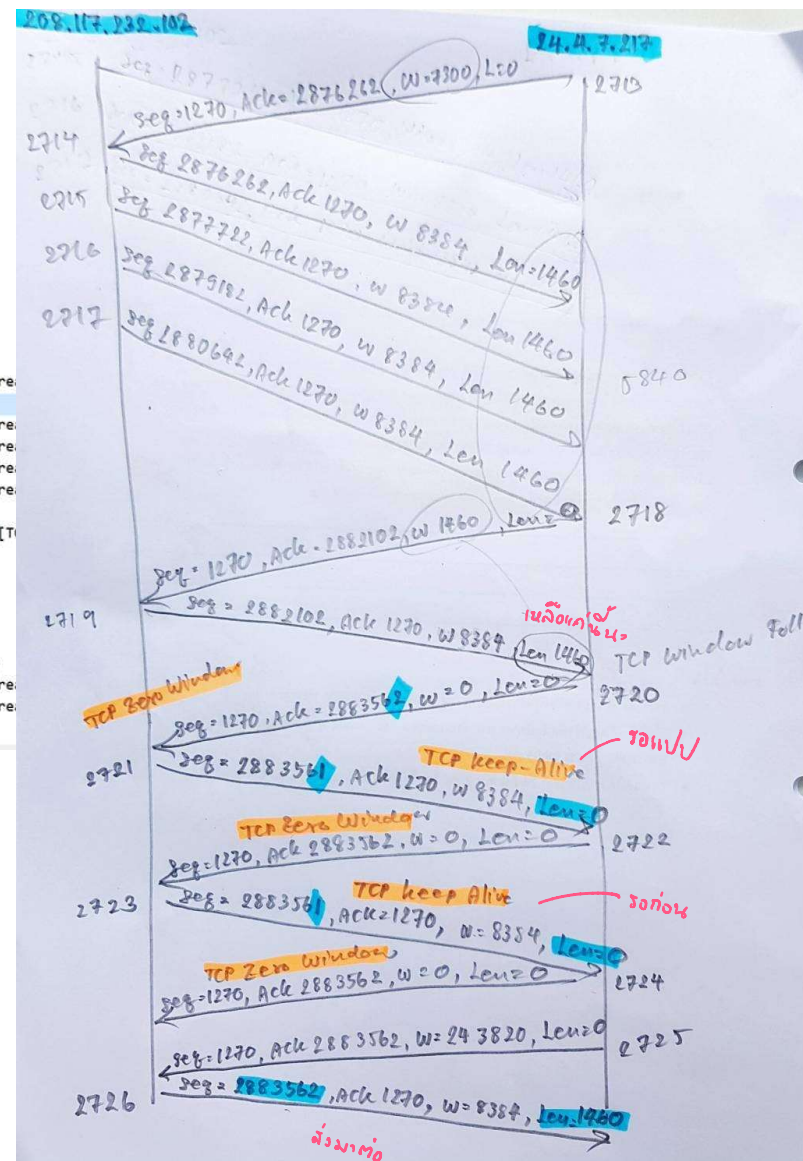 208.117.232.102
24.4.7.217
2713
seq=1270, Ack=2876262, W=7300, L=0
2714
seq 2876262, Ack 1270, W 8384, Len=1460
2715
seq 2877722, Ack 1270, W 8384, Len 1460
2716
seq 2879182, Ack 1270, W 8384, Len 1460
2717
seq 2880642, Ack 1270, W 8384, Len 1460
5840
2718
seq=1270, Ack=2882102, W 1460, Len=
2719
seq=2882102, Ack 1270, W 8384, Len 1460
เหลือแค่นี้นะ
TCP Window Full
2720
TCP Zero Window
seq=1270, Ack=2883562, W=0, Len=0
2721
TCP Keep-Alive
รอแปป
seq=2883561, Ack 1270, W 8384, Len=0
2722
TCP Zero Window
seq=1270, Ack 2883562, W=0, Len=0
2723
TCP Keep Alive
รอก่อน
seq=2883561, Ack=1270, W=8384, Len=0
2724
TCP Zero Window
seq=1270, Ack 2883562, W=0, Len=0
2725
seq=1270, Ack 2883562, W=243820, Len=0
2726
seq=2883562, Ack 1270, W=8384, Len=1460
ส่งมาต่อ